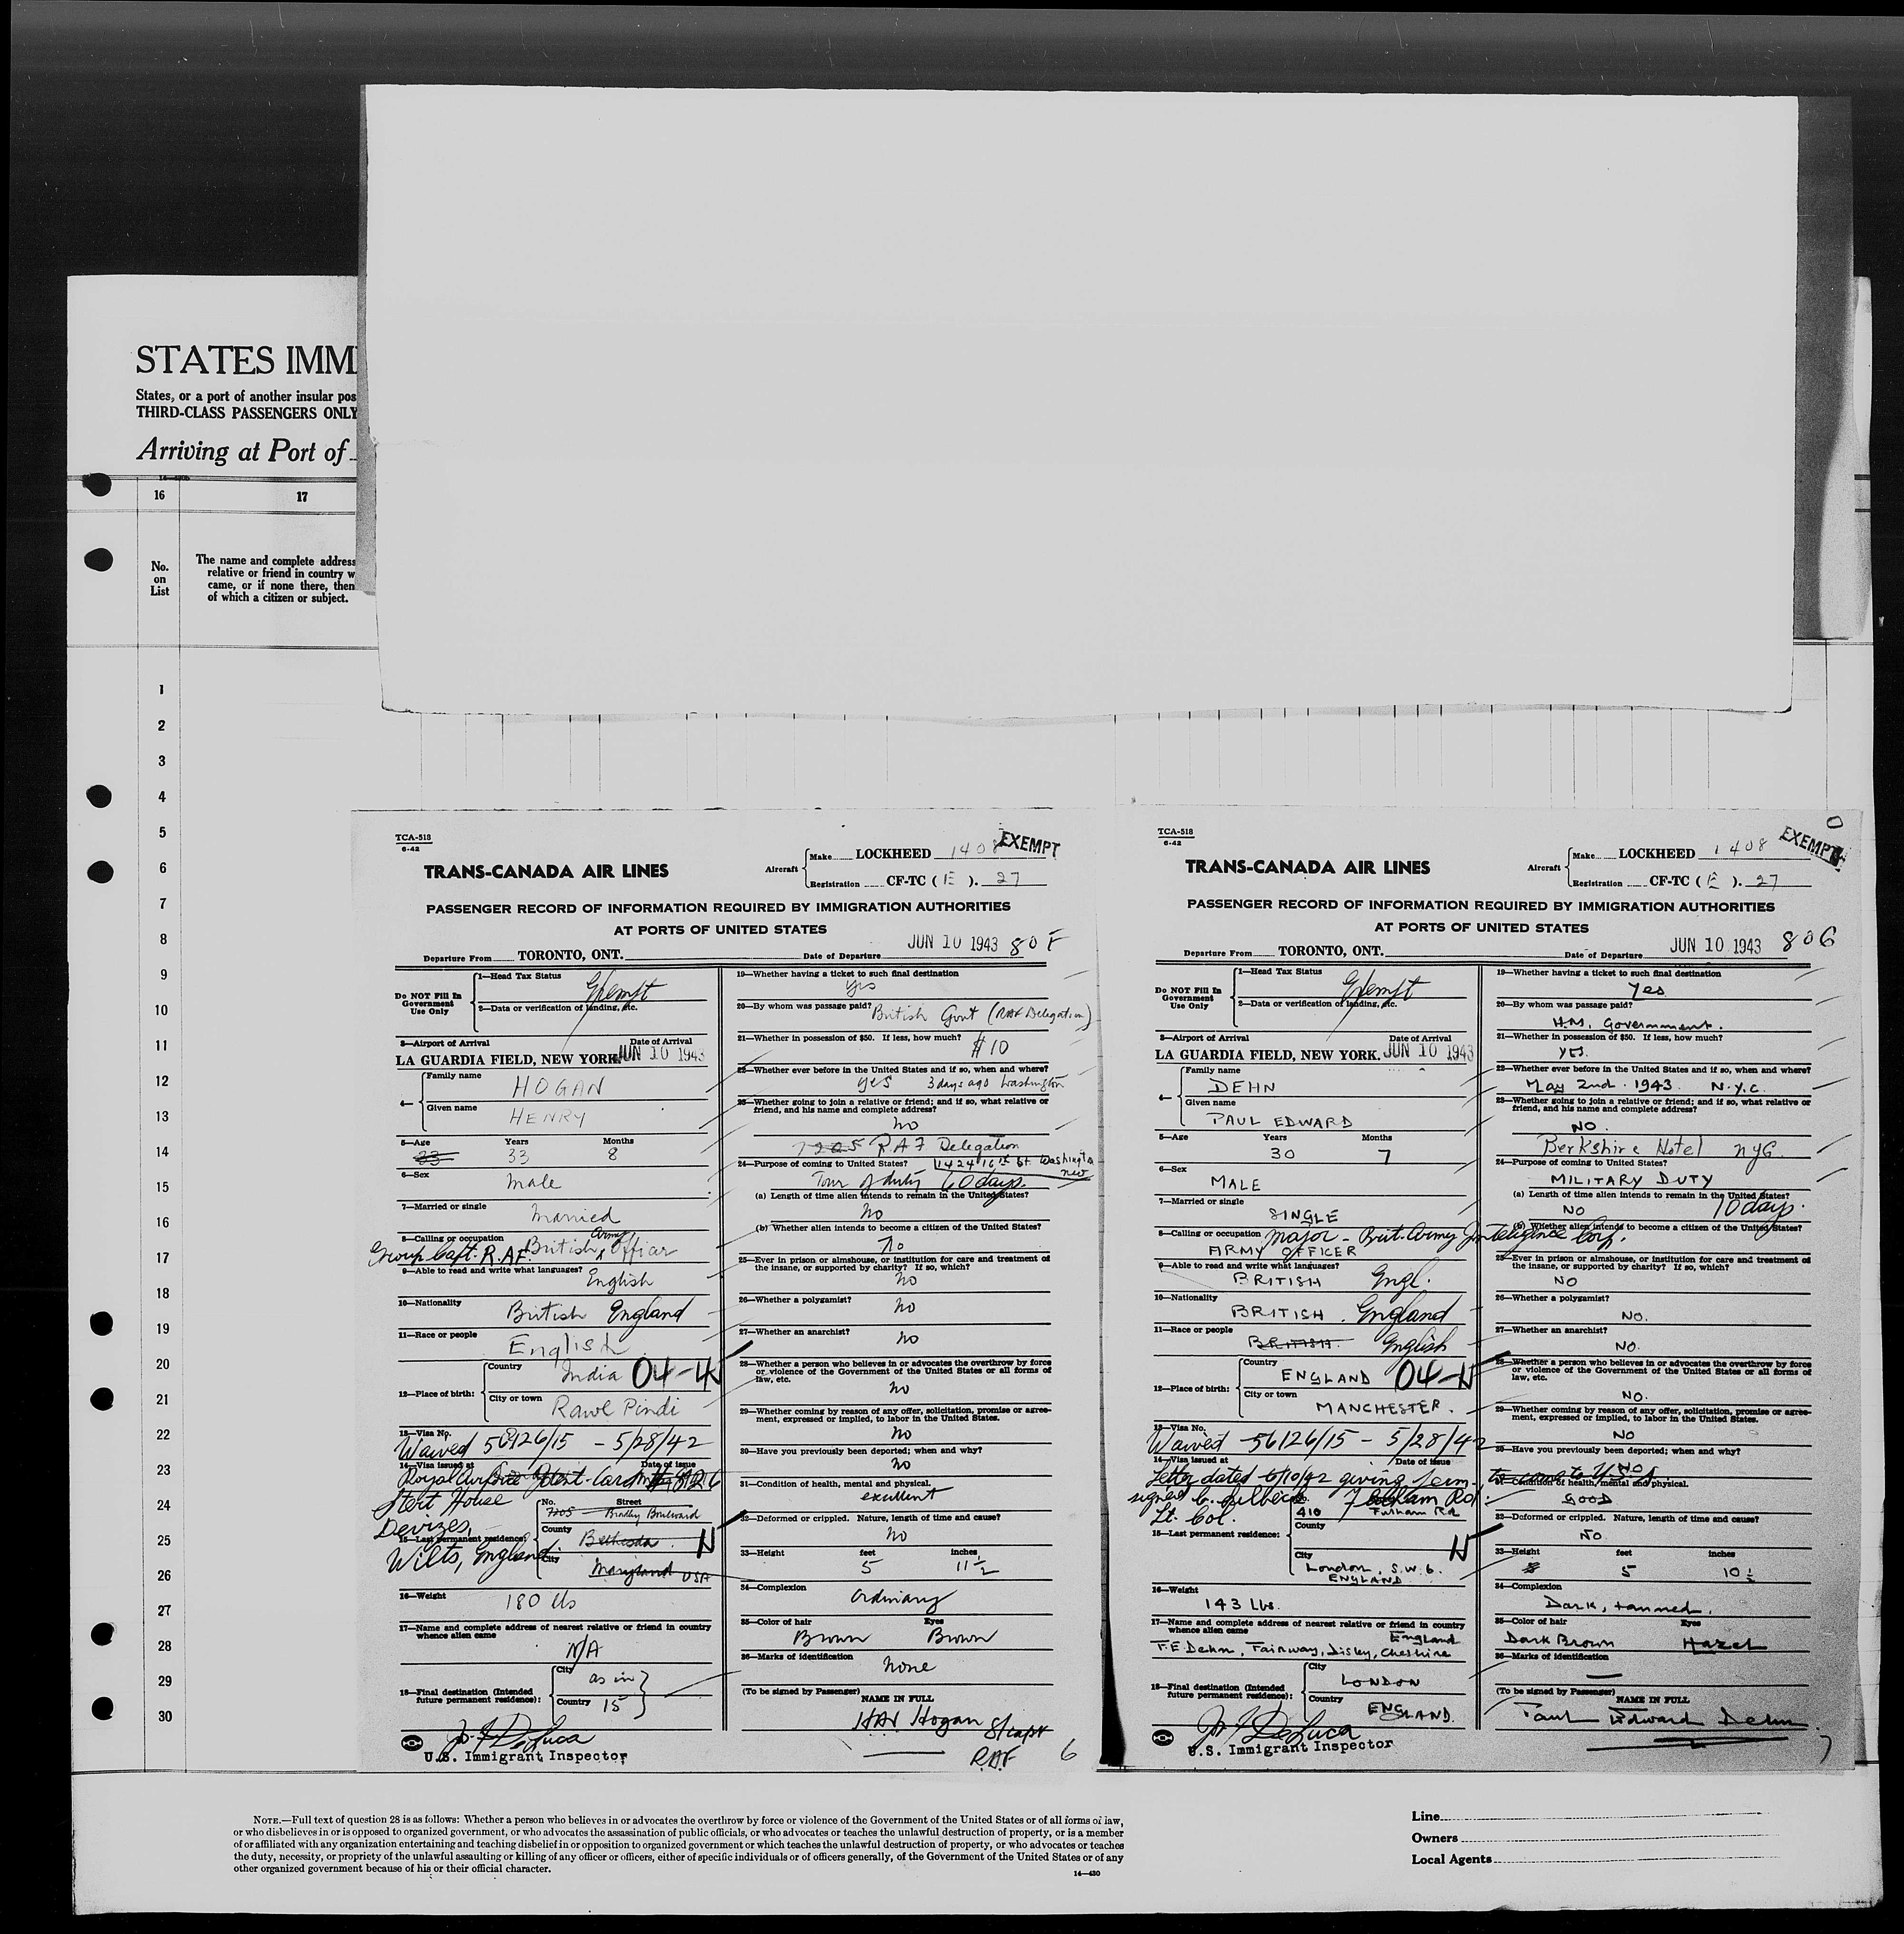 STATES IMM
States, or a port of another insular pos
THIRD-CLASS PASSENGERS ONLY
Arriving at Port of
16 17
No. on List
The name and complete address
relative or friend in country w
came, or if none there, then
of which a citizen or subject.
1
2
3
4
5
6
7
8
9
10
11
12
13
14
15
16
17
18
19
20
21
22
23
24
25
26
27
28
29
30
TCA-518
6-42
EXEMPT
TRANS-CANADA AIR LINES
Aircraft Make LOCKHEED 1408
Registration CF-TC ( E ). 27
PASSENGER RECORD OF INFORMATION REQUIRED BY IMMIGRATION AUTHORITIES
AT PORTS OF UNITED STATES
JUN 10 1943 80 F
Departure From TORONTO, ONT. Date of Departure
Do NOT Fill In Government Use Only
1—Head Tax Status Exempt
2—Data or verification of landing, etc.
3—Airport of Arrival Date of Arrival
LA GUARDIA FIELD, NEW YORK. JUN 10 1943
4— Family name HOGAN
Given name HENRY
5—Age Years Months
33 33 8
6—Sex male
7—Married or single Married
8—Calling or occupation British Army Officer
Group Capt. R.AF.
9—Able to read and write what languages? English
10—Nationality British England
11—Race or people English
12—Place of birth: Country India 04-4
City or town Rawl Pindi
13—Visa No.
Waived 56126/15 - 5/28/42
14—Visa issued at Date of issue
Royal Airforce Ident. Card
Stert House
Devizes,
Wilts, England
15—Last permanent residence: No. Street 7205 Bradley Boulevard
County Bethesda N
City Maryland USA
16—Weight 180 lbs
17—Name and complete address of nearest relative or friend in country
whence alien came
N/A
18—Final destination (Intended
future permanent residence): City as in
Country 15
U.S. Immigrant Inspector
19—Whether having a ticket to such final destination
yes
20—By whom was passage paid? British Govt (RAF Delegation)
21—Whether in possession of $50. If less, how much? $10
22—Whether ever before in the United States and if so, when and where?
yes 3 days ago Washington
23—Whether going to join a relative or friend; and if so, what relative or
friend, and his name and complete address?
No
7205 RAF Delegation
24—Purpose of coming to United States? 1424 16th St Washington
Tour of duty 60 days.
(a) Length of time alien intends to remain in the United States?
no
(b) Whether alien intends to become a citizen of the United States?
no
25—Ever in prison or almshouse, or institution for care and treatment of
the insane, or supported by charity? If so, which?
no
26—Whether a polygamist? no
27—Whether an anarchist? no
28—Whether a person who believes in or advocates the overthrow by force
or violence of the Government of the United States or all forms of
law, etc.
no
29—Whether coming by reason of any offer, solicitation, promise or agree-
ment, expressed or implied, to labor in the United States.
no
30—Have you previously been deported; when and why?
no
31—Condition of health, mental and physical.
excellent
32—Deformed or crippled. Nature, length of time and cause?
no
33—Height feet inches
5 11½
34—Complexion Ordinary
35—Color of hair Eyes
Brown Brown
36—Marks of identification none
(To be signed by Passenger)
NAME IN FULL
Hogan
RAF 6
TCA-518
6-42
EXEMPT
TRANS-CANADA AIR LINES
Aircraft Make LOCKHEED 1408
Registration CF-TC ( E ). 27
PASSENGER RECORD OF INFORMATION REQUIRED BY IMMIGRATION AUTHORITIES
AT PORTS OF UNITED STATES
JUN 10 1943 80G
Departure From TORONTO, ONT. Date of Departure
Do NOT Fill In Government Use Only
1—Head Tax Status Exempt
2—Data or verification of landing, etc.
3—Airport of Arrival Date of Arrival
LA GUARDIA FIELD, NEW YORK. JUN 10 1943
4— Family name DEHN
Given name PAUL EDWARD
5—Age Years Months
30 7
6—Sex MALE
7—Married or single SINGLE
8—Calling or occupation Major - Brit. Army Intelligence Corp.
ARMY OFFICER
9—Able to read and write what languages?
BRITISH Engl.
10—Nationality BRITISH. England
11—Race or people BRITISH. English
12—Place of birth: Country ENGLAND 04-N
City or town MANCHESTER.
13—Visa No.
Waived 56126/15 - 5/28/42
14—Visa issued at Date of issue
Letter dated 6/10/42 giving perm. to come to U.S.A.
signed
Lt. Col.
15—Last permanent residence: 410 Fulham Rd
County
City London, S.W.6. N
ENGLAND
16—Weight 143 Lbs.
17—Name and complete address of nearest relative or friend in country
whence alien came England
F.E Dehn, Fairway, Disley, Cheshire
18—Final destination (Intended
future permanent residence): City LONDON
Country ENGLAND.
U.S. Immigrant Inspector
19—Whether having a ticket to such final destination
Yes
20—By whom was passage paid?
H.M. Government.
21—Whether in possession of $50. If less, how much?
YES.
22—Whether ever before in the United States and if so, when and where?
May 2nd. 1943. N.Y.C.
23—Whether going to join a relative or friend; and if so, what relative or
friend, and his name and complete address?
NO.
Berkshire Hotel nyc.
24—Purpose of coming to United States?
MILITARY DUTY
(a) Length of time alien intends to remain in the United States?
NO 10 days.
(b) Whether alien intends to become a citizen of the United States?
25—Ever in prison or almshouse, or institution for care and treatment of
the insane, or supported by charity? If so, which?
NO
26—Whether a polygamist?
NO.
27—Whether an anarchist?
NO.
28—Whether a person who believes in or advocates the overthrow by force
or violence of the Government of the United States or all forms of
law, etc.
NO.
29—Whether coming by reason of any offer, solicitation, promise or agree-
ment, expressed or implied, to labor in the United States.
NO
30—Have you previously been deported; when and why?
NO
31—Condition of health, mental and physical.
GOOD
32—Deformed or crippled. Nature, length of time and cause?
NO.
33—Height feet inches
5 10½
34—Complexion
Dark, tanned.
35—Color of hair Eyes
Dark Brown Hazel
36—Marks of identification
—
(To be signed by Passenger)
NAME IN FULL
Paul Edward Dehn.
7
NOTE.—Full text of question 28 is as follows: Whether a person who believes in or advocates the overthrow by force or violence of the Government of the United States or of all forms of law,
or who disbelieves in or is opposed to organized government, or who advocates the assassination of public officials, or who advocates or teaches the unlawful destruction of property, or is a member
of or affiliated with any organization entertaining and teaching disbelief in or opposition to organized government or which teaches the unlawful destruction of property, or who advocates or teaches
the duty, necessity, or propriety of the unlawful assaulting or killing of any officer or officers, either of specific individuals or of officers generally, of the Government of the United States or of any
other organized government because of his or their official character.
14—430
Line
Owners
Local Agents